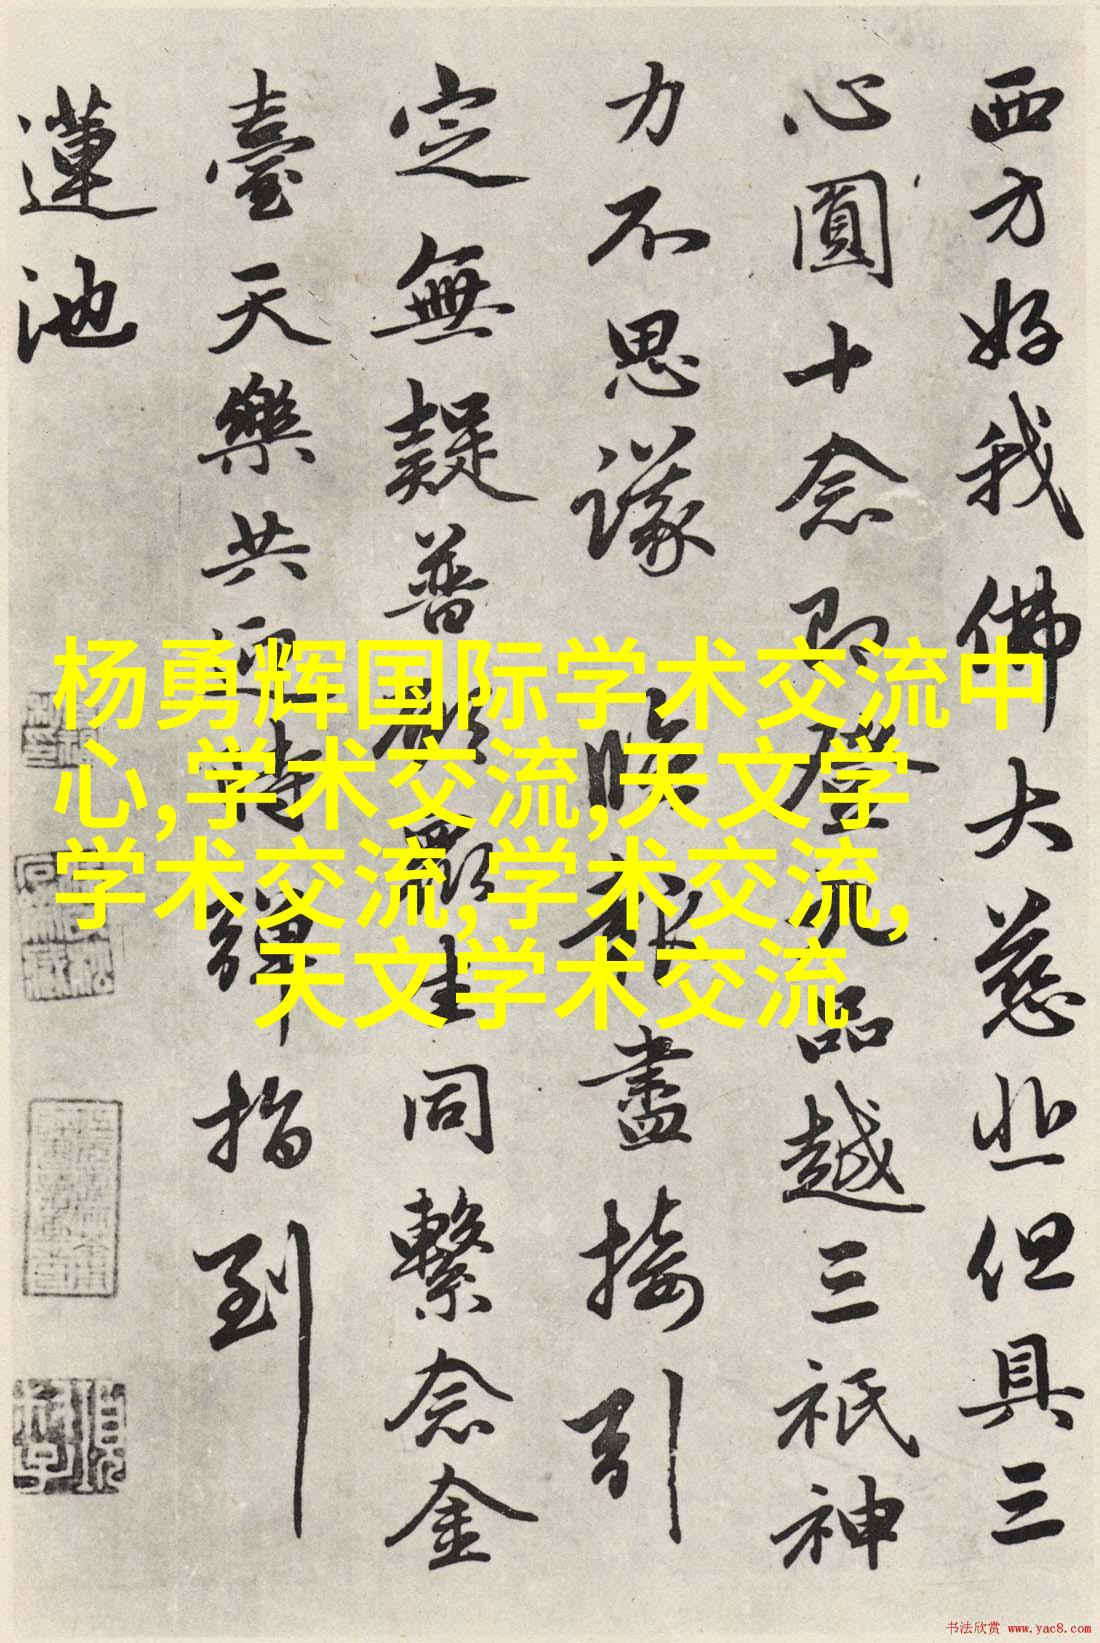 西方好我佛大慈悲但具三
心圓十念即登九品越三祇神
力不思議臨報盡接引
定無疑普願眾生同繫念金
臺天樂共迎時彈指到
蓮池
杨勇辉国际学术交流中
心,学术交流,天文学
学术交流,学术交流,
天文学术交流
书法欣赏 www.yac8.com